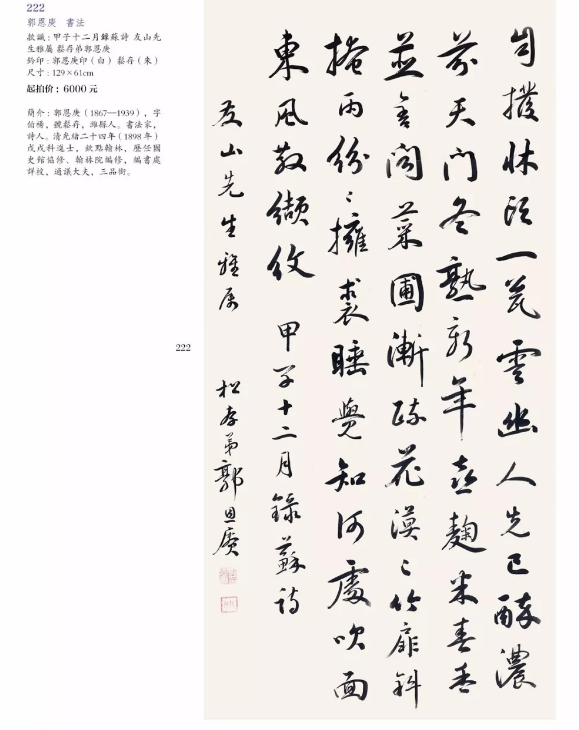 222
郭恩庚 書法
款識：甲子十二月錄蘇詩 友山先
生雅屬 鬆存弟郭恩庚
鈐印：郭恩庚印（白） 鬆存（朱）
尺寸：129×61cm
起拍价：6000元
簡介：郭恩庚（1867—1939），字
伯楊，號鬆存，濰縣人。書法家，
詩人。清光緒二十四年（1898年）
戊戌科進士，欽點翰林，歷任國
史館協修、翰林院編修，編書處
詳校，通議大夫，三品銜。
222
自撥牀頭一瓮雲幽人先已醉濃
芬天門冬熟新年喜麴米春香
並舍聞菜圃漸疎花漠〻竹扉斜
掩雨紛〻擁裘睡覺知何處吹面
東風散纈紋 甲子十二月錄蘇詩
友山先生雅屬 松存弟郭恩賡